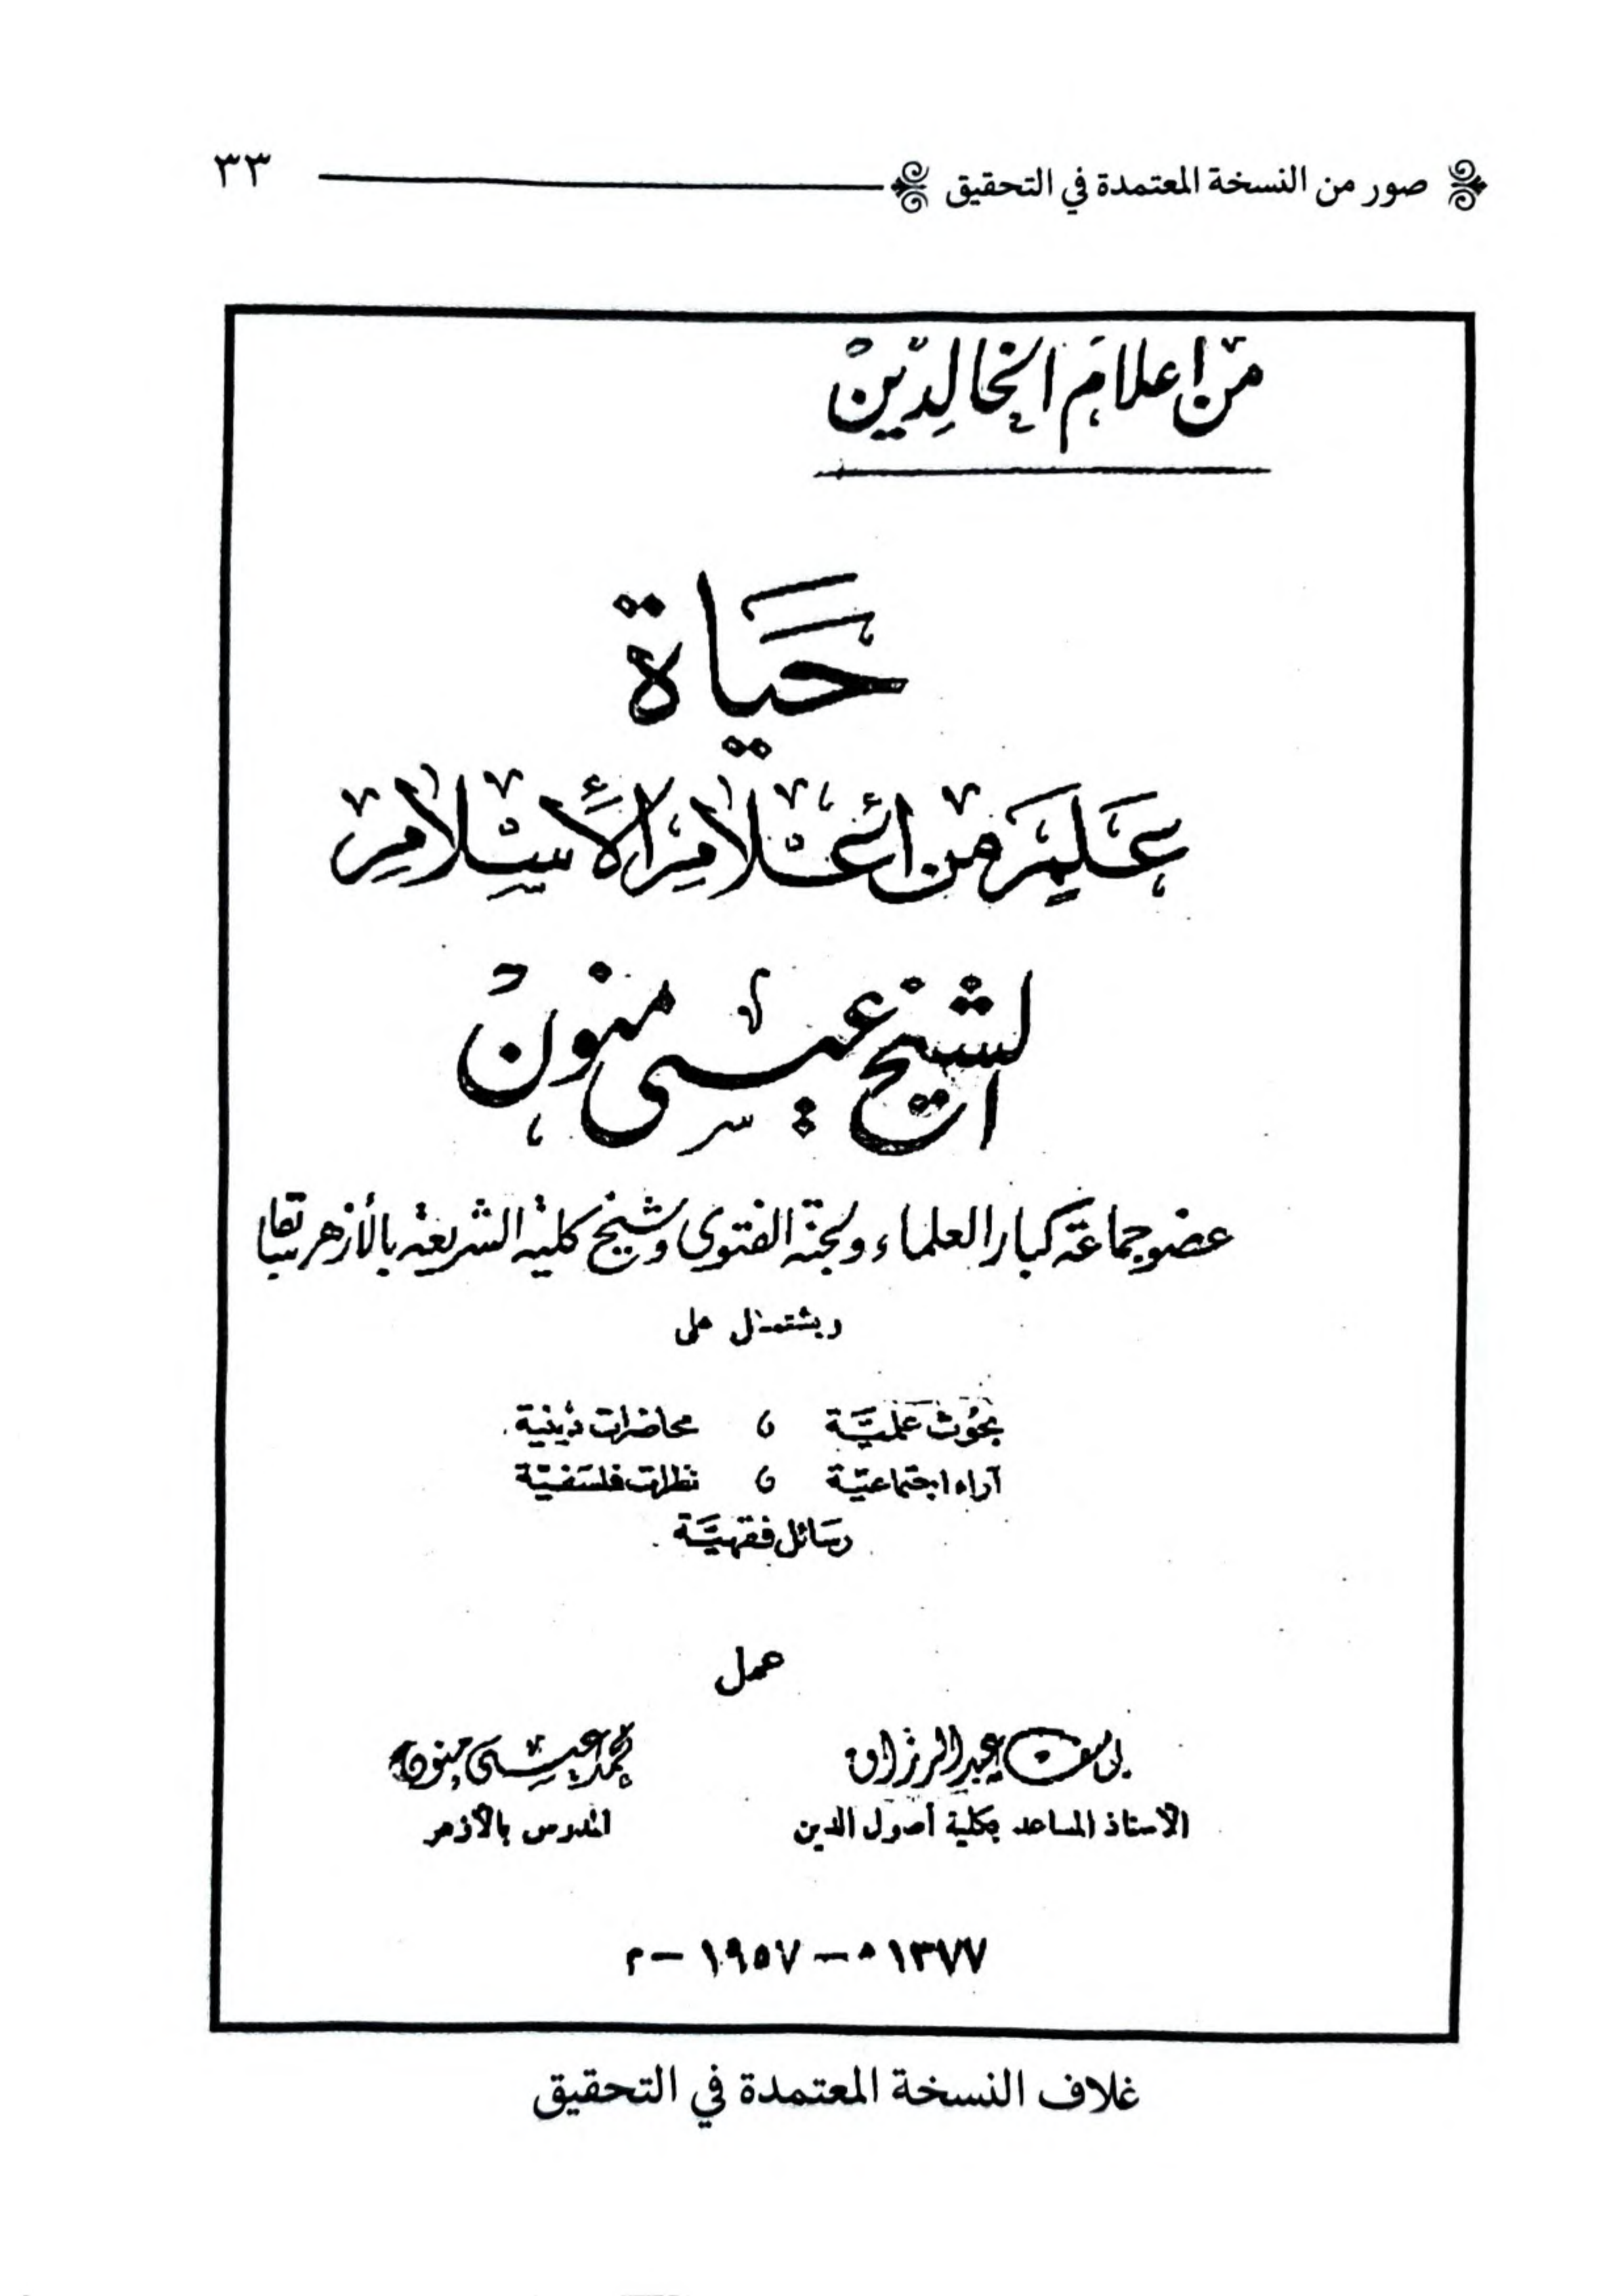 صور من النسخة المعتمدة في التحقيق ٣٣
من اعلام الخالدين
حياة
علم من أعلام الأسلام
الشيخ عيسى منون
عضو جماعة كبار العلماء ولجنة الفتوى وشيخ كلية الشريعة بالأزهر سابقا
ويشتمل على
بحوث علمية ، محاضرات دينية
آراء اجتماعية ، نظرات فلسفية
رسائل فقهية
عمل
يوسف عبد الرزاق محمد عيسى منون
الأستاذ المساعد بكلية أصول الدين المدرس بالأزهر
١٣٧٧ ه – ١٩٥٧ – م
غلاف النسخة المعتمدة في التحقيق